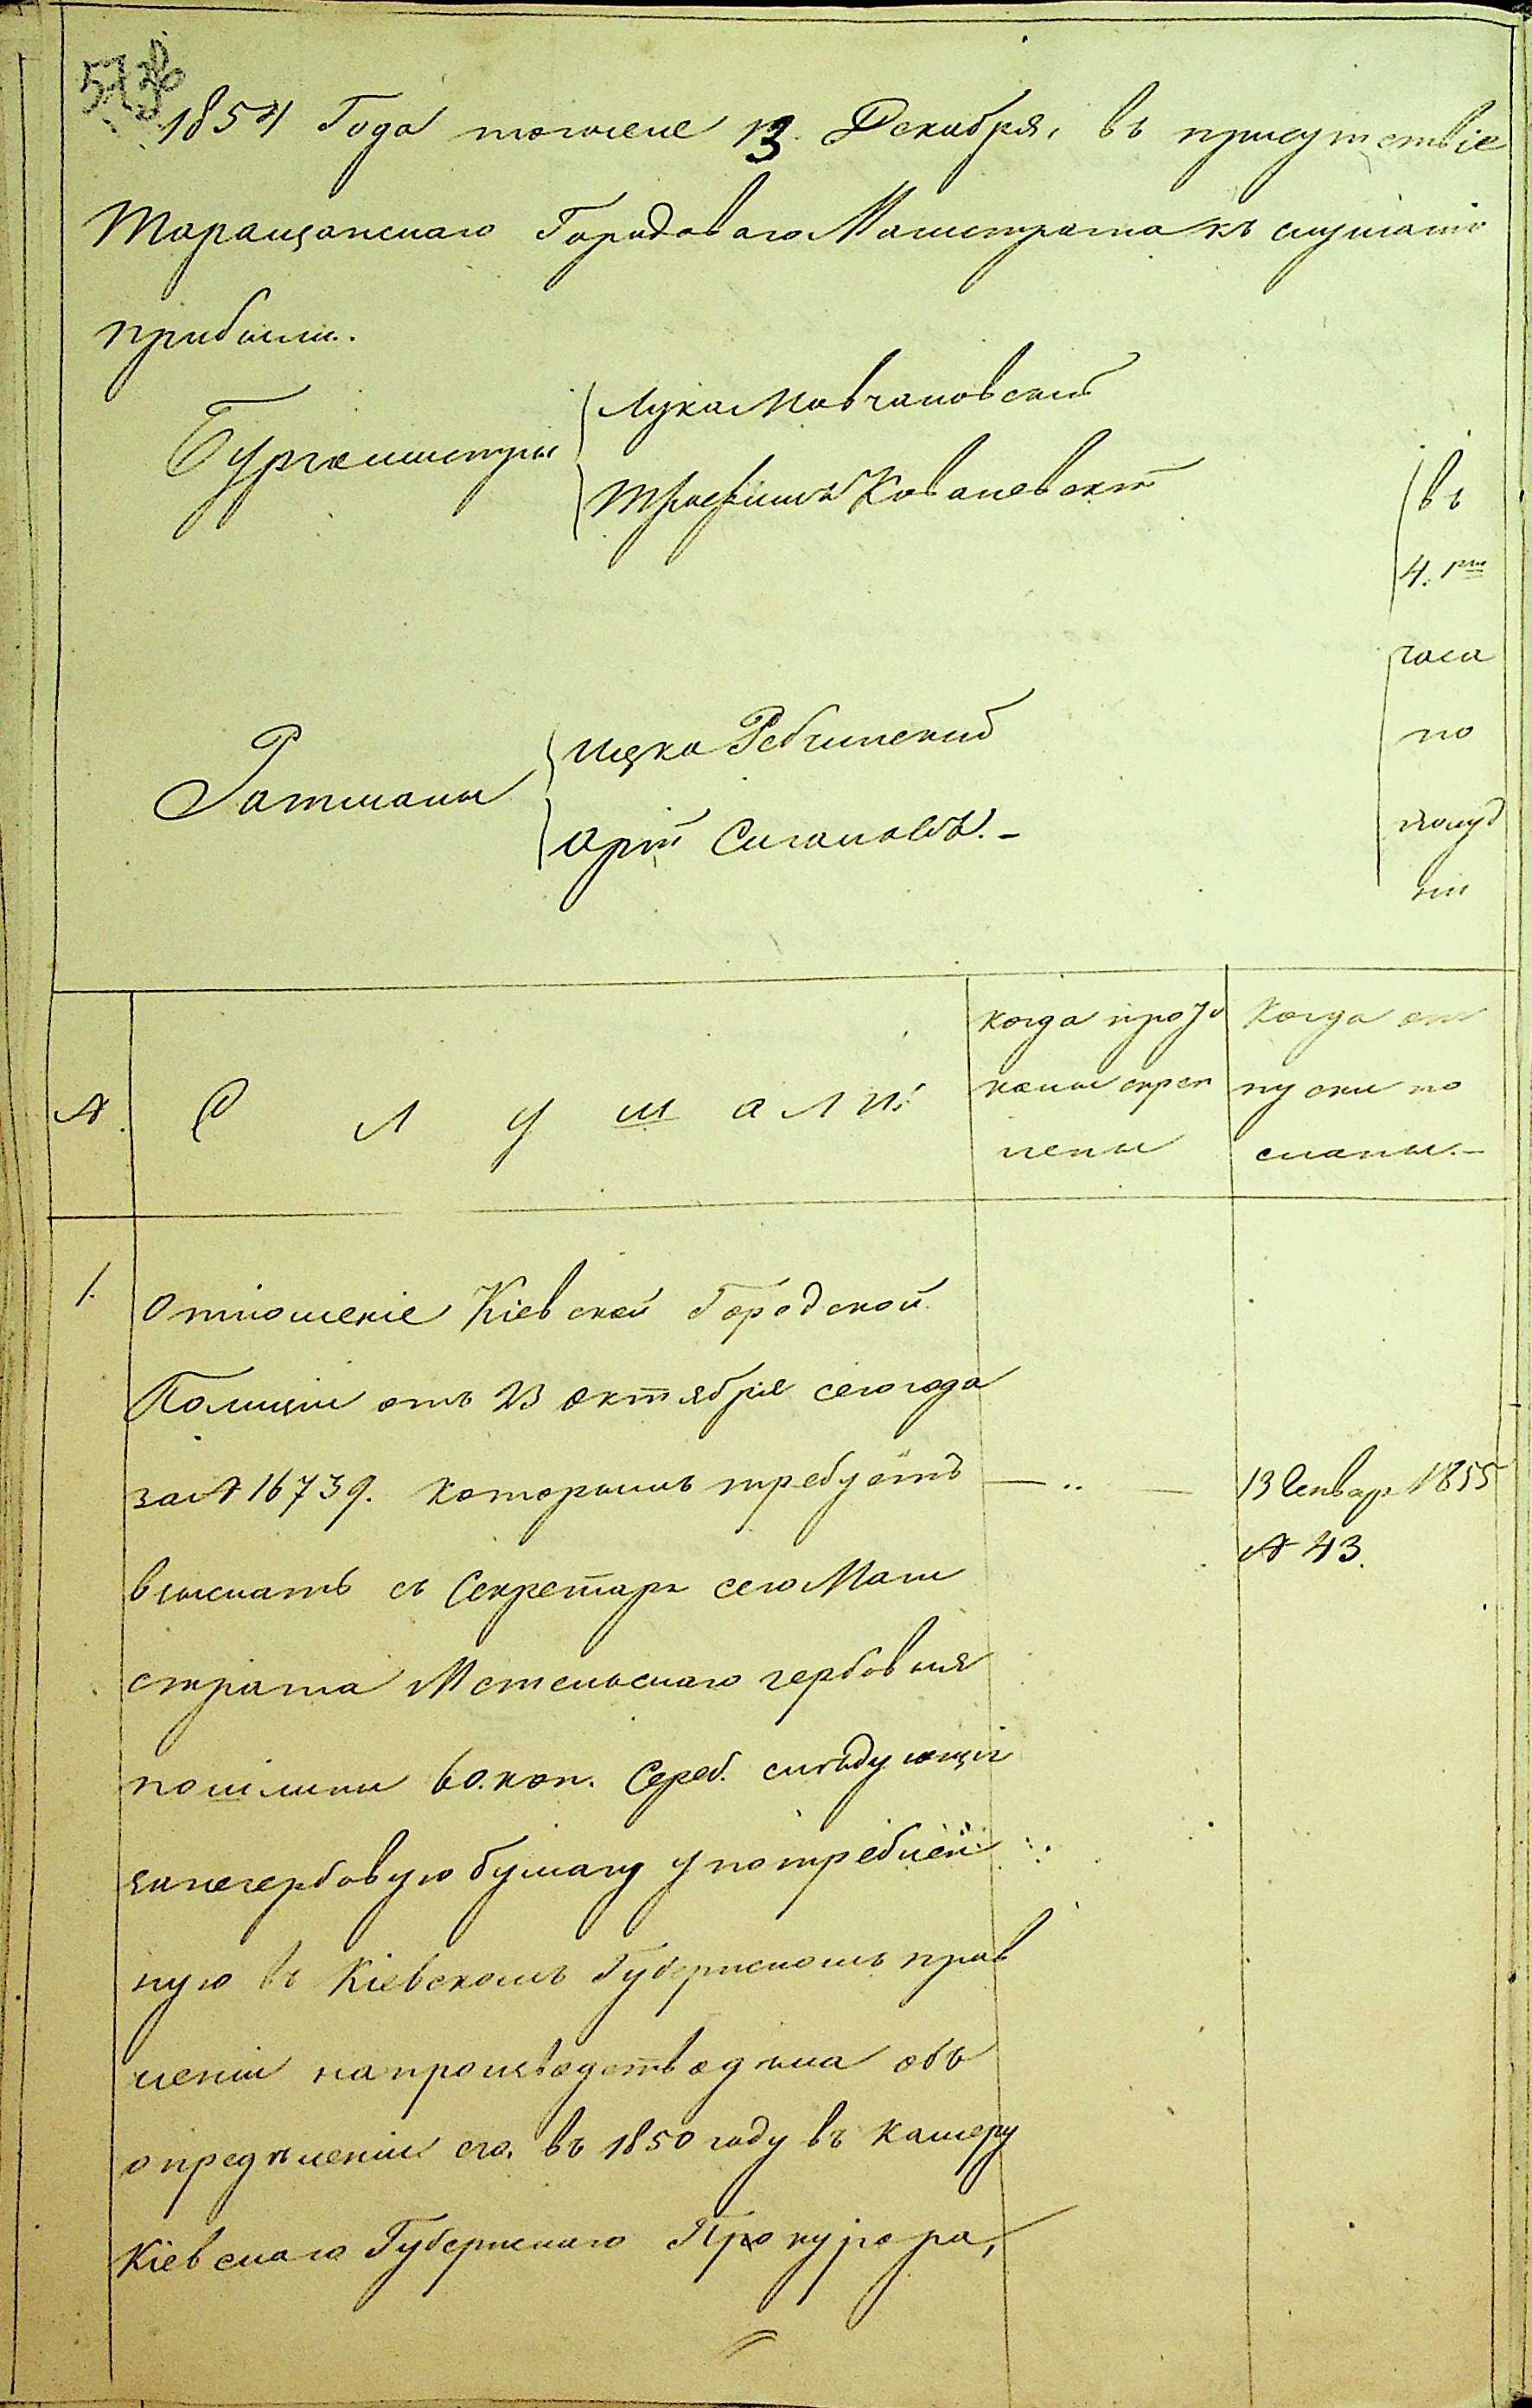 1854 Года месяца 13 Декабря, въ присутствіе
Таращанскаго Городоваго Магистрата къ слушанію
прибыли.
Бургомистры
Лука Мовчановскій
Трофимъ Ковалевскій
въ
4.
часа
по
полуд
ни
Ратманы
Ицко Рабчинскій
Арій
№.
Слушали:
когда прото
колы скреп
лены
Когда от
пуски по
сланы.-
1.
Отношеніе Кіевской Городской
Полиціи отъ 23 Октября сего года
за № 16739. которымъ требуетъ
взыскать съ Секретаря сего Маги
страта Метельскаго гербовыя
пошлины 60. коп. Сереб. следующія
за негербовую бумагу употреблен
ную въ Кіевскомъ Губернскомъ прав
леніи на производство дела объ
определеніи его. въ 1850 году въ Камеру
Кіевскаго Губернскаго Прокурора,
13 Генвар 1855
№ 43.